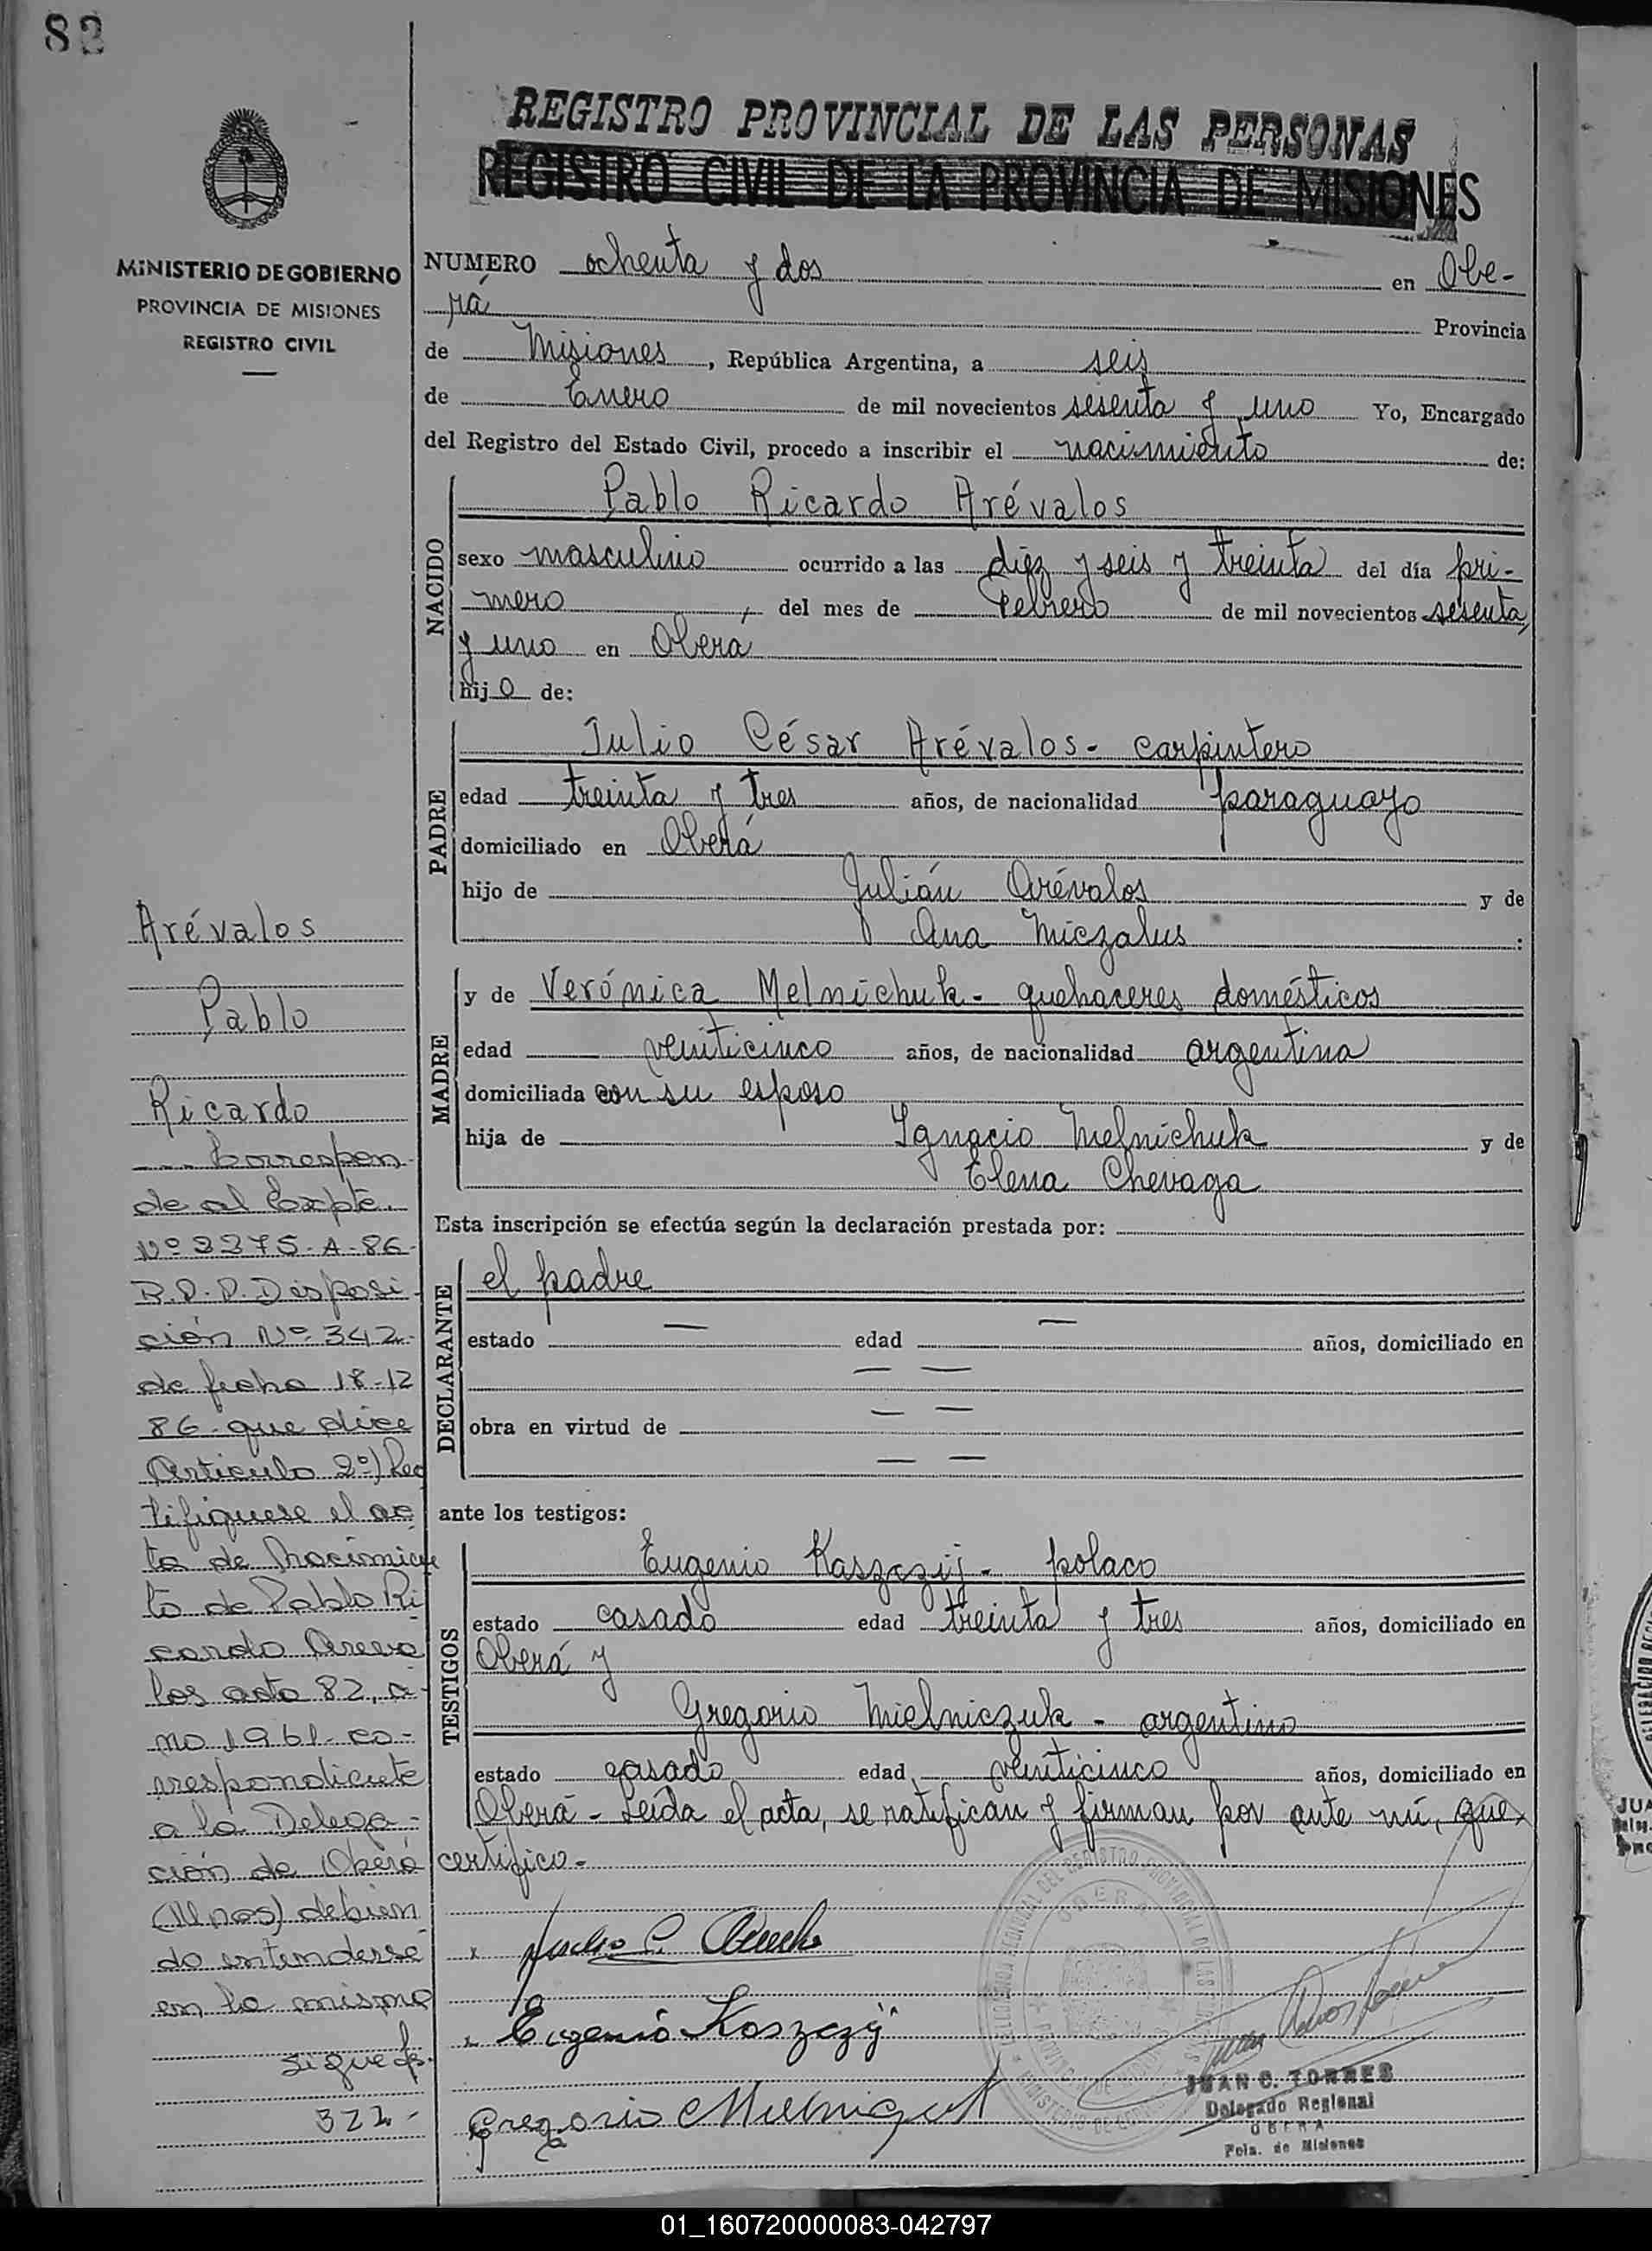 82
REGISTRO PROVINCIAL DE LAS PERSONAS
REGISTRO CIVIL DE LA PROVINCIA DE MISIONES
MINISTERIO DE GOBIERNO
PROVINCIA DE MISIONES
REGISTRO CIVIL
NUMERO ochenta y dos en Obe-
rá Provincia
de Misiones, República Argentina, a seis
de Enero de mil novecientos sesenta y uno Yo, Encargado
del Registro del Estado Civil, procedo a inscribir el nacimiento de:
NACIDO
Pablo Ricardo Arévalos
sexo masculino ocurrido a las diez y seis y treinta del día pri-
mero, del mes de Febrero de mil novecientos sesenta
y uno en Oberá
hijo de:
PADRE
Julio César Arévalos - carpintero
edad treinta y tres años, de nacionalidad paraguayo
domiciliado en Oberá
hijo de Julián Arévalos y de
Ana Miczalus:
MADRE
y de Verónica Melnichuk - quehaceres domésticos
edad veinticinco años, de nacionalidad argentina
domiciliada con su esposo
hija de Ignacio Melnichuk y de
Elena Chevaga
Esta inscripción se efectúa según la declaración prestada por:
DECLARANTE
el padre
estado — edad — años, domiciliado en
— —
obra en virtud de — —
— —
ante los testigos:
TESTIGOS
Eugenio Kaszczij - polaco
estado casado edad treinta y tres años, domiciliado en
Oberá y
Gregorio Mielniczuk - argentino
estado casado edad veinticinco años, domiciliado en
Oberá - Leída el acta, se ratifican y firman por ante mí, que
certifico.-
x Julio C.
x Eugenio Koszczij
Gregorio
JUAN C. TORRES
Delegado Regional
OBERA
Pcia. de Misiones
Arévalos
Pablo
Ricardo
--- Correspon-
de al Expte.
Nº 2275-A-86-
R.P.P. Disposi-
ción Nº 342-
de fecha 18-12
86- que dice
Artículo 2º) Rec
tifíquese el ac
ta de Nacimien
to de Pablo Ri
cardo Areva
los acta 82, a-
ño 1961- co-
rrespondiente
a la Delega-
ción de Oberá
(Mnes) debien
do entenderse
en la misma
sigue f.
322-
01_160720000083-042797